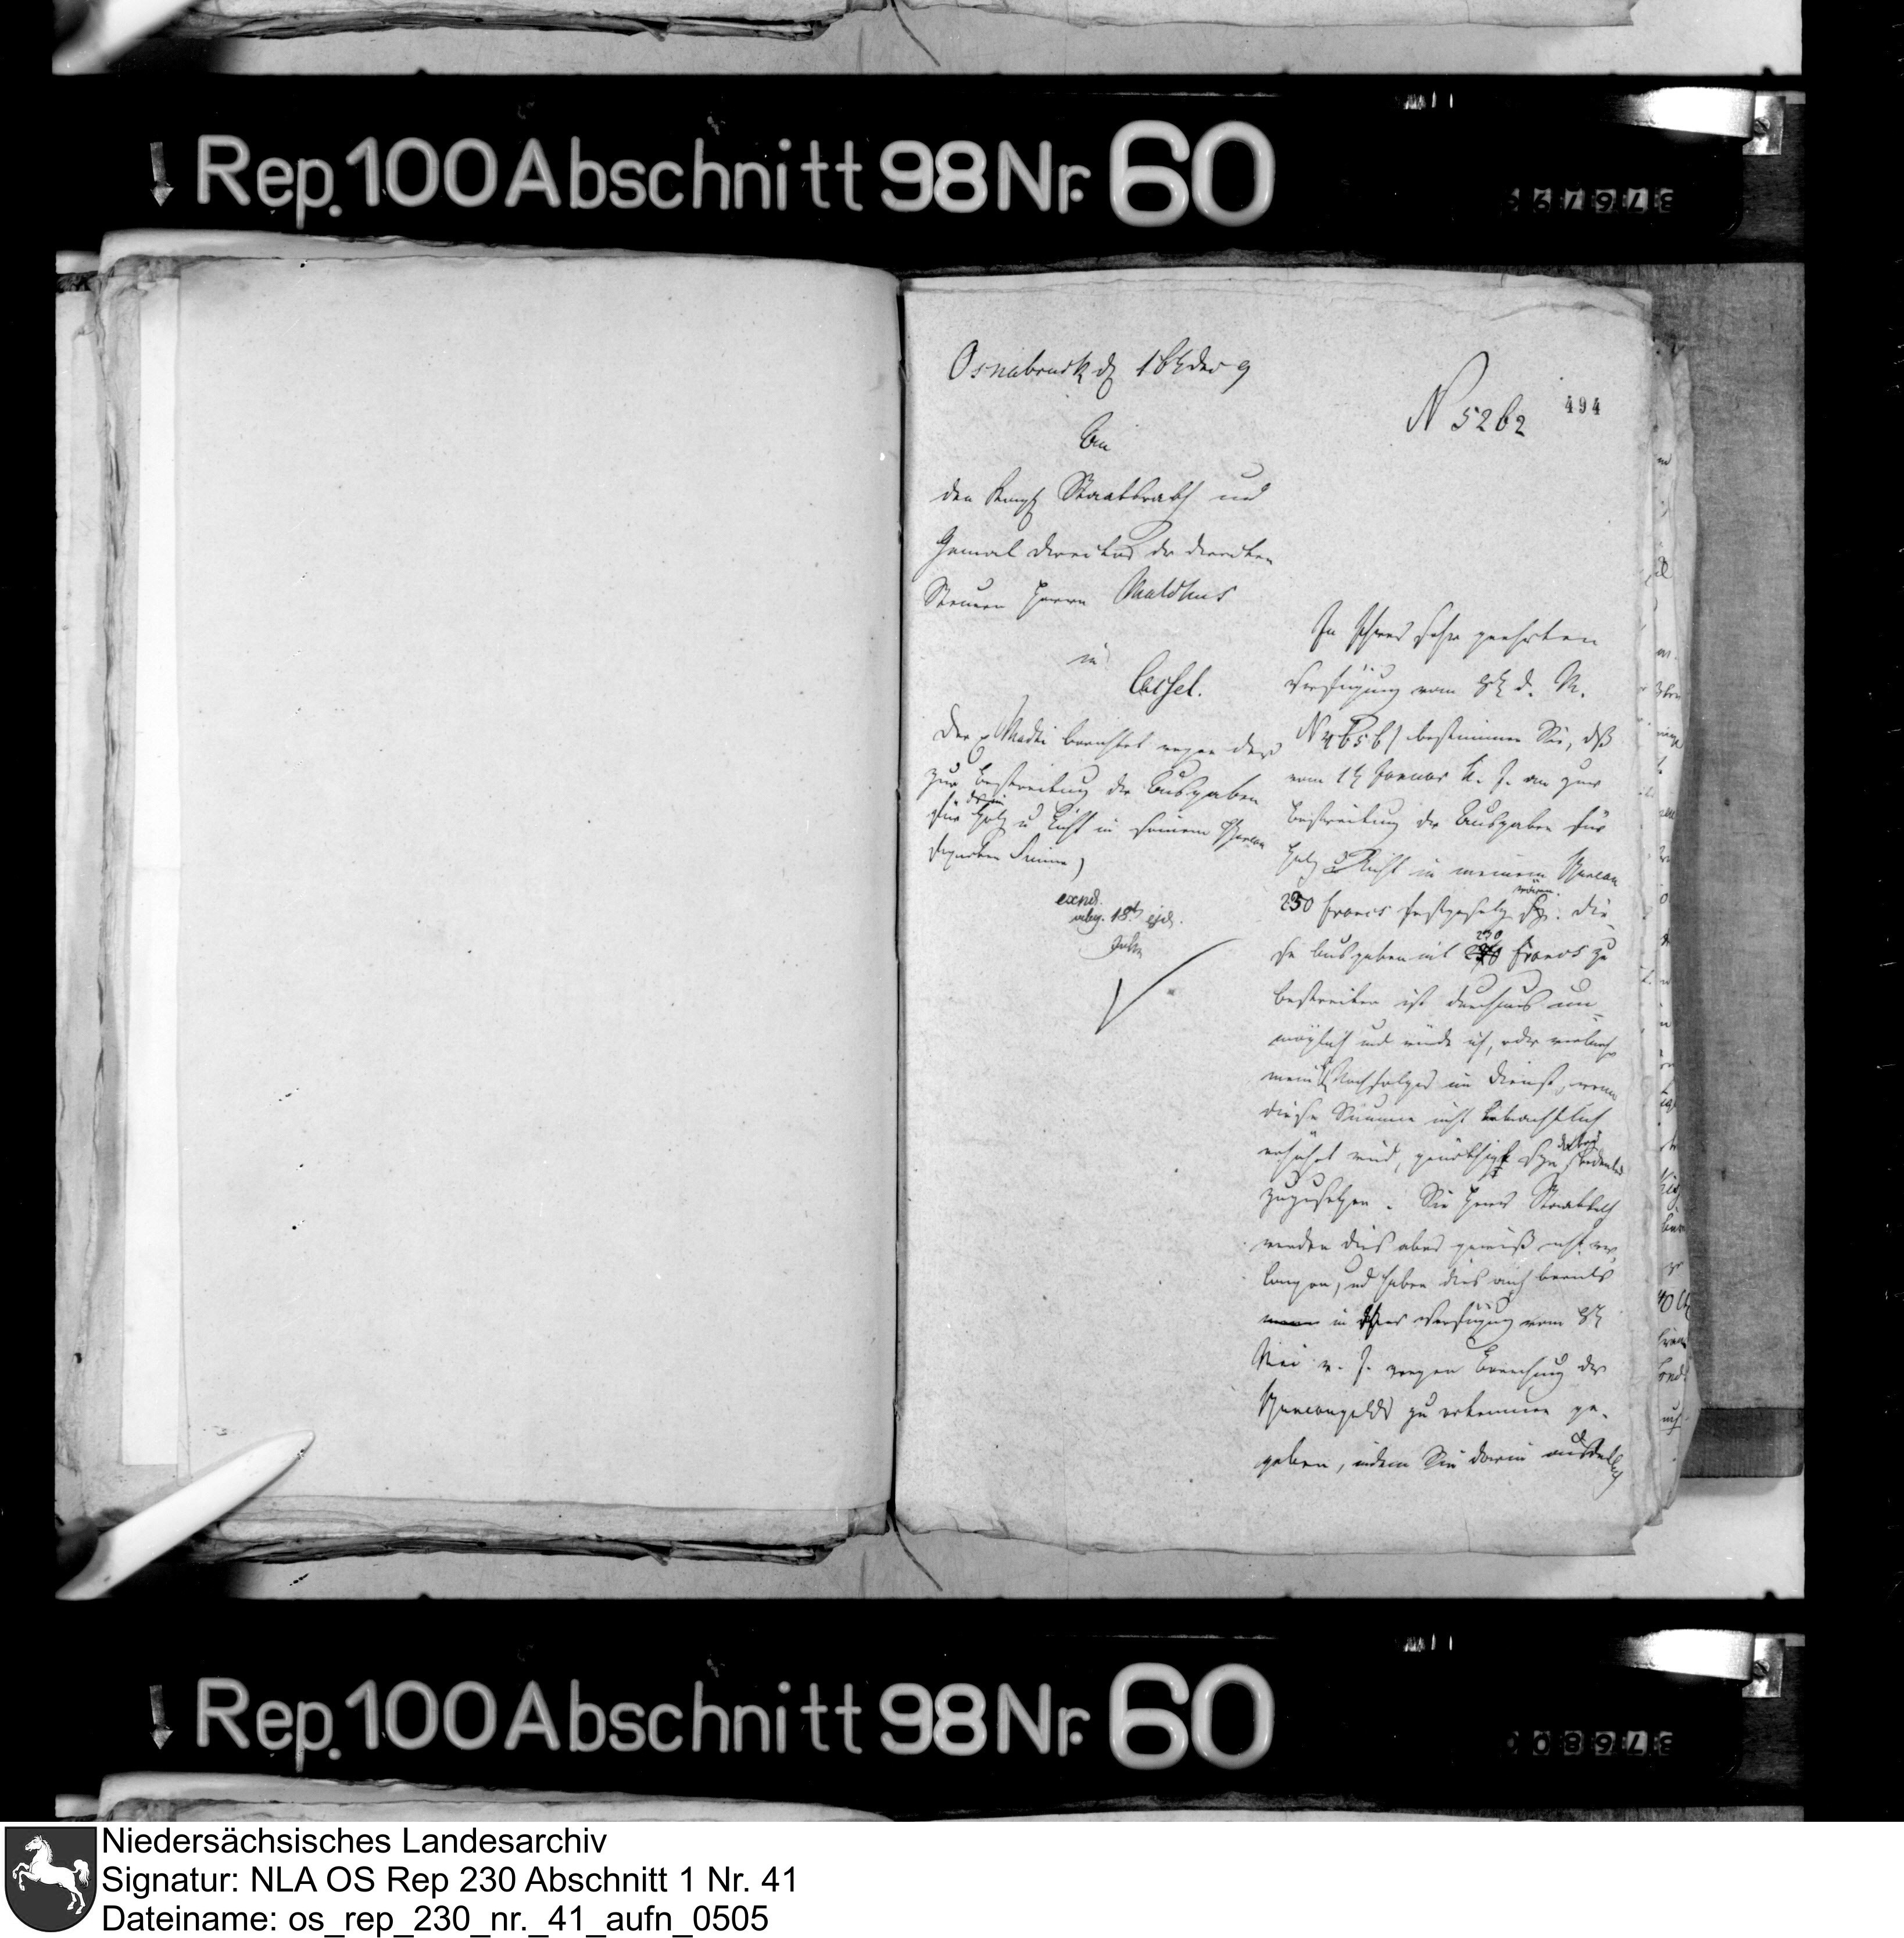 Rep. 100 Abschnitt 98 Nr. 60
Osnabruck d 16t
N 5262
494
An
den Königl Staatsrath und
General Director der directen
Steuern Herrn Malchus
in
Cassel.
berichtet wegen der
zur Bestreitung der Ausgaben
für Holz u Licht in seinem Bureau
18t ejd.
In Ihrer sehr geehrten
Verfügung vom 8t d. M.
bestimmen Sie, daß
vom 1t Januar k. J. an zur
Bestreitung der Ausgaben für
Holz u Licht in meinem Bureau
230 Francs festgesetzt wären. Die-
se Ausgaben mit 230 Francs zu
bestreiten ist durchaus un-
möglich und würde ich, oder vielmehr
mein Nachfolger im Dienst, wenn
diese Summe nicht beträchtlich
erhöhet wird, genöthigt seyn
zuzusetzen. Sie Herr Staatsrath
werden dies aber gewiß nicht ver-
langen, und haben dies auch bereits
in Ihrer Verfügung vom 8t
Mai v. J. wegen Berechnung der
Bureaugelder zu erkennen ge-
geben, indem Sie darin
Rep. 100 Abschnitt 98 Nr. 60
Niedersächsisches Landesarchiv
Signatur: NLA OS Rep 230 Abschnitt 1 Nr. 41
Dateiname: os_rep_230_nr._41_aufn_0505